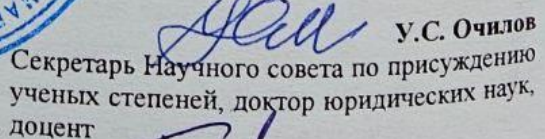 У.С. Очилов
Секретарь Научного совета по присуждению
ученых степеней, доктор юридических наук,
доцент